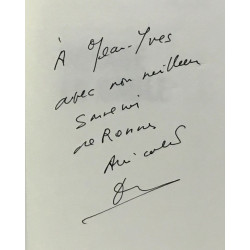 À Jean-Yves
avec mon meilleur
souvenir
de Rennes
Amicalement